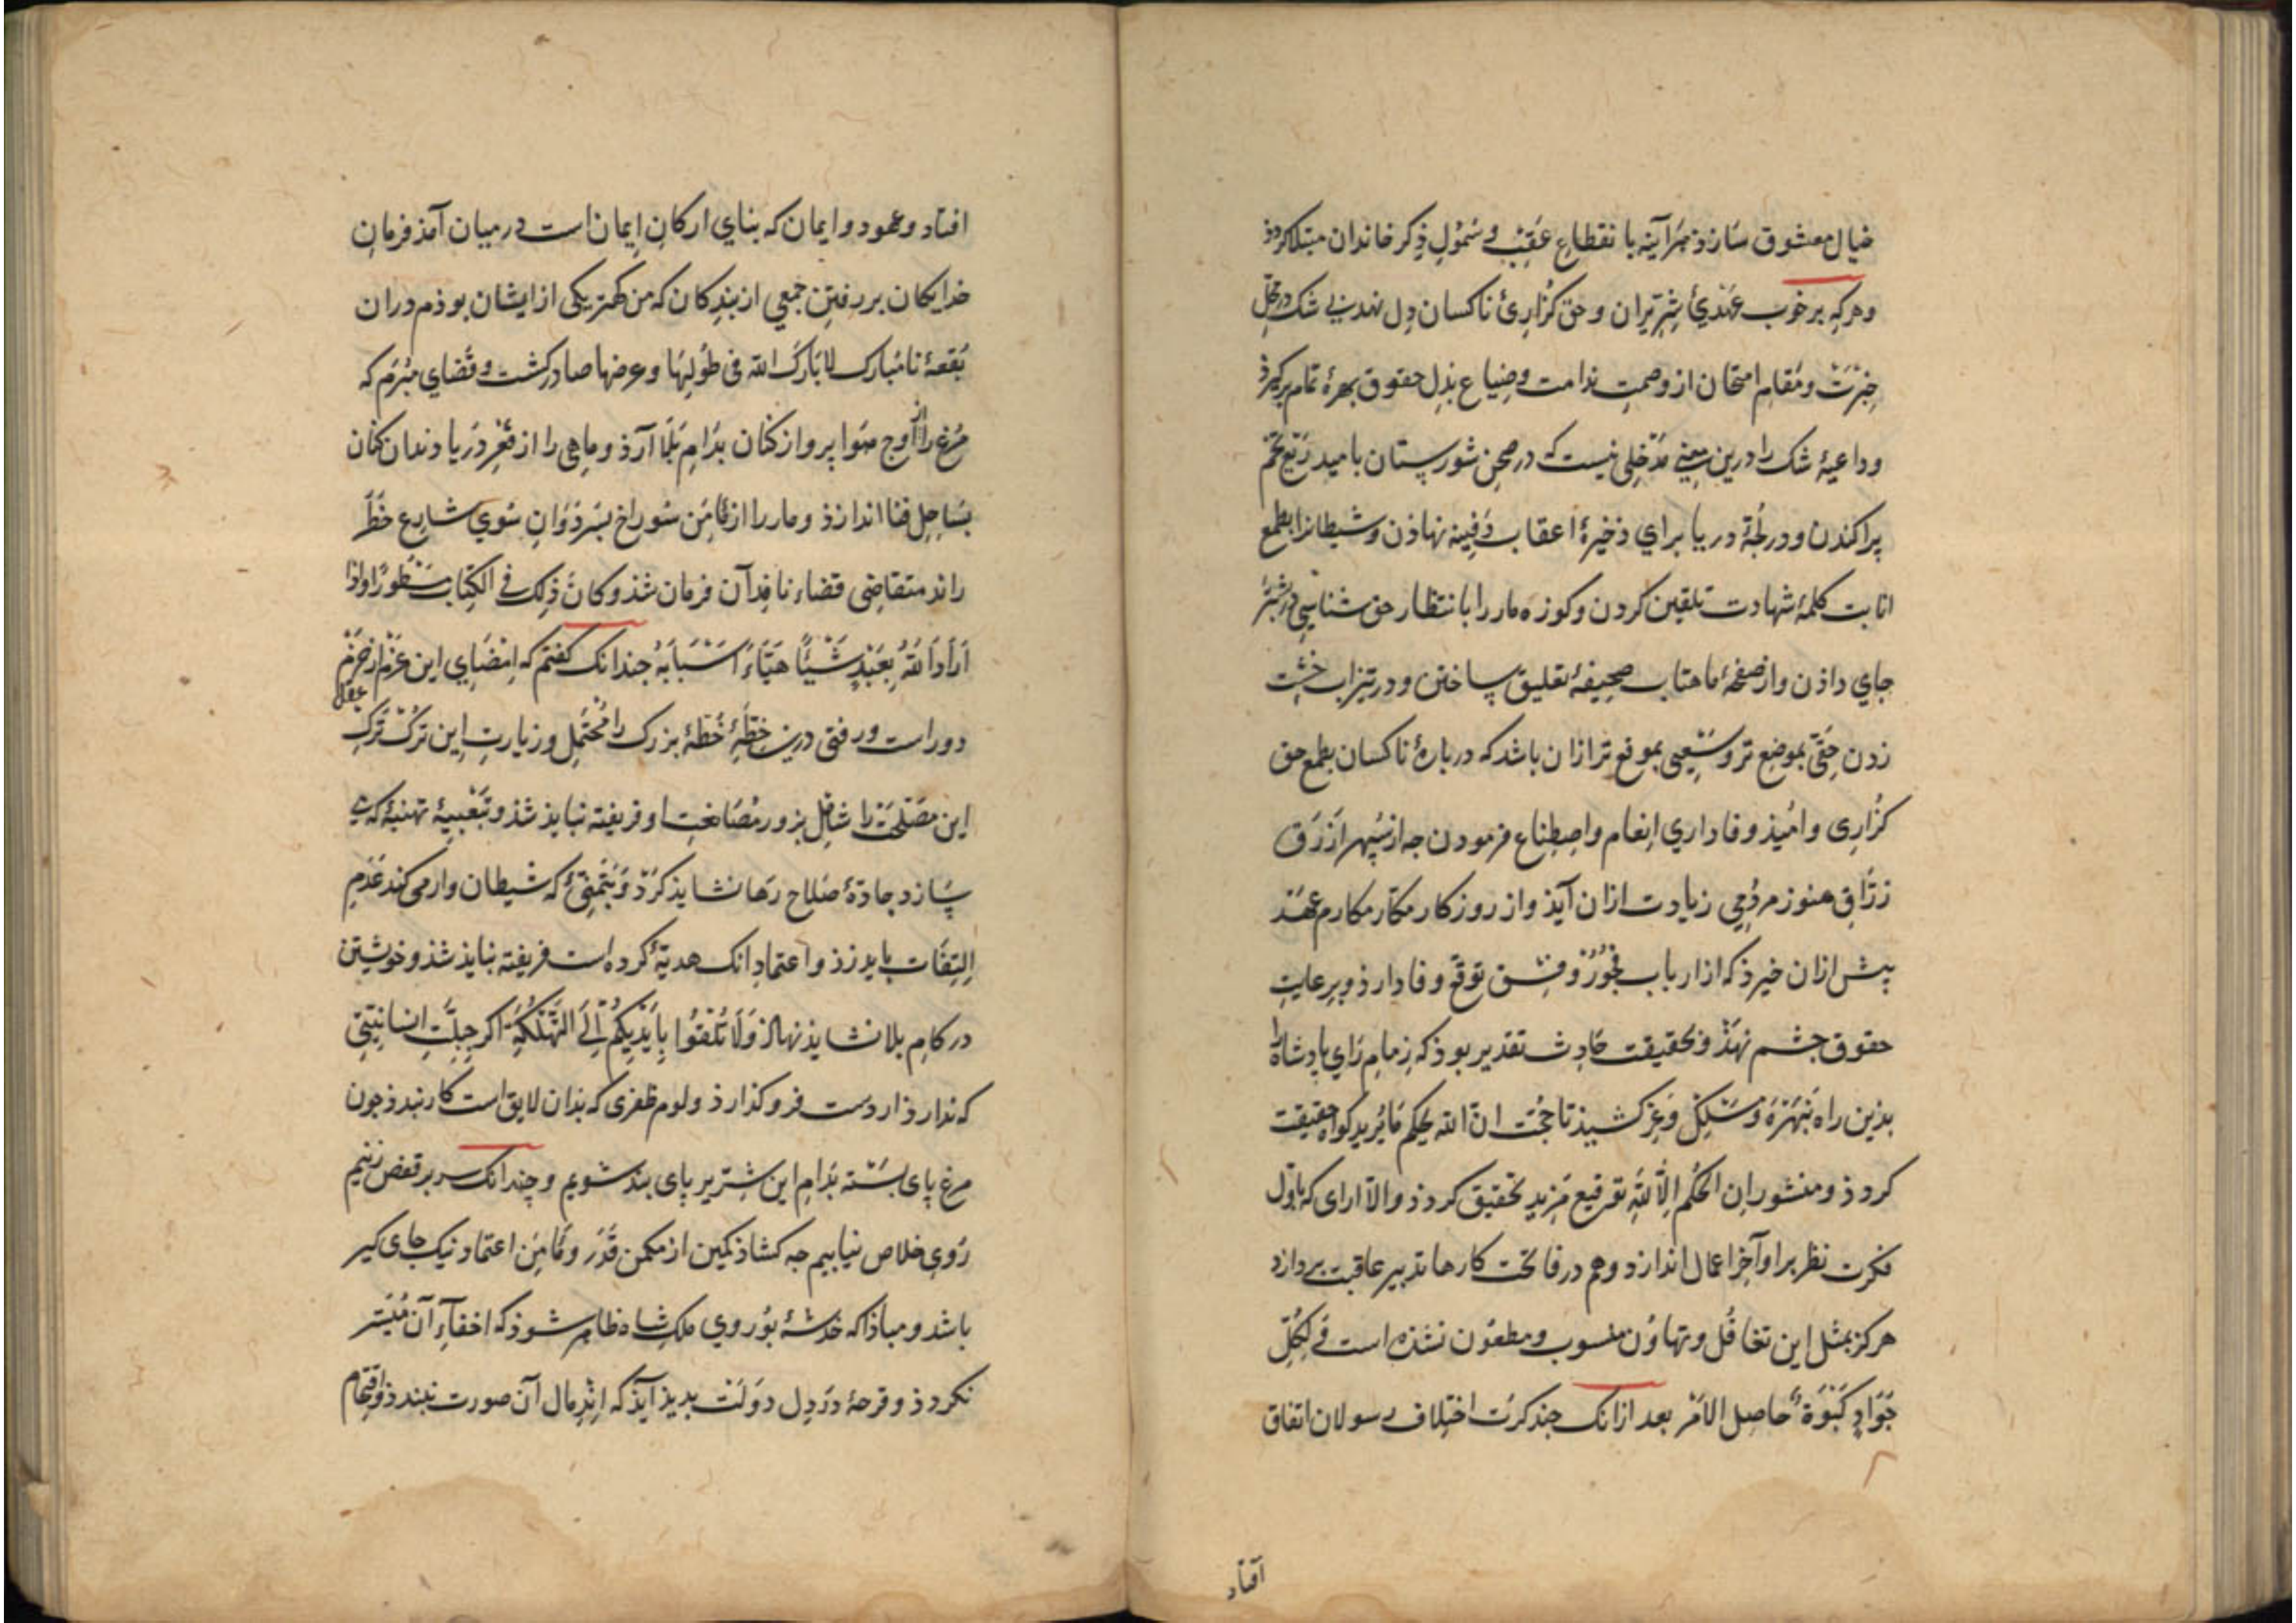 خیال معشوق سازذ هرآینه بانقطاع عقب و شمول ذکر خاندان مبتلا کردذ
وهرکه بر خوب عهدئ شریران وحق کزارئ ناکسان دل نهد بی شک در محل
ومقام امتحان از وصمت ندامت وضیاع بذل حقوق بهرهٔ تمام برکیرذ
وداعیهٔ شک را درین معنی مدخلی نیست که در صحن شورستان بامید ریع تخم
پراکندن ودر لجّهٔ دریا برای ذخیرهٔ اعقاب دفینه نهاذن وشیطانرا بطمع
انابت کلمهٔ شهادت تلقین کردن وکوزه مار را بانتظار حق شناسی در
جای داذن واز صفحهٔ ماهتاب صحیفهٔ تعلیق ساختن ودر تیزاب خشت
زدن حقّی بموضع تر وسعیی بموقع تر ازان باشد که دربارهٔ ناکسان بطمع حق
کزاری وامیذ وفاداری انعام واصطناع فرمودن جه از سپهر ازرق
زرّاق هنوز مردمی زیادت ازان آیذ واز روزکار مکّار مکارم عهد
پیش ازان خیزذ که از ارباب فجور وفسق توقّع وفا دارذ وبرعایت
حقوق جشم نهذ وبحقیقت حادث تقدیر بوذ که زمام رای پادشاه را
بذین راه بنهره ومسلک وعر کشیذ تا حجّت انّ الله یحکم ما یرید کواه حقیقت
کردذ ومنشور ان الحکم الّا لله توقیع مزید تحقیق کردذ والّا ارای که باوّل
فکرت نظر بر اوآخر اعمال اندازد وهم در فاتحت کارها تدبیر عاقبت بردازد
هرکز بمثل این تغافل وتهاون منسوب ومطعون نشذه است فی لکلّ
جواد کبوة حاصل الامر بعد ازانک جند کرت اختلاف رسولان اتفاق
آفتاد
افتاد وعهود وایمان که بنای ارکان ایمان است در میان آمذ فرمان
خدایکان بر رفتن جمعی از بندکان که من کهتر یکی از ایشان بوذم دران
بقعهٔ نامبارک لا بارک الله فی طولها وعرضها صادر کشت وقضای مبرم که
مرغ را از اوج هوا پرواز کنان بدام بلا آرذ وماهی را از قعر دریا دندان کنان
بساحل فنا اندازذ ومار را از مأمن سوراخ بسر دوان سوی شارع خطر
راند متقاضی قضاء نافد آن فرمان شذ وکان ذلک فی الکتاب مسطورا واذا
اراد الله بعبد شیئا هیّاء اسبابه جندانک کفتم که امضای این عزم از حزم
دوراست ورفتی درین خطّهٔ خطهٔ بزرک را محتمل وزیارت این ترک ترک عقل
این مصلحت را شامل بزور مصانعت او فریفته نبایذ شذ وتعبیهٔ تهنیهٔ که می
سازد جادهٔ صلاح رها نشایذ کرد وتمنّیٔ که شیطان وار می کند عدم
التفات بایدزذ واعتماد انک هدیّهٔ کرده است فریفته نبایذ شذ وخویشتن
در کام بلا نشایذ نهاذ ولا تلقوا بایدیکم الی التهلکة اکر جبلّت انسانیتی
که ندارذ از دست فروکذارذ ولوم ظفری که بذان لایق است کار بندذ جون
مرغ پای بسته بدام این شریر پای بند شویم وچندانک سر بر قفص زنیم
روی خلاص نیابیم جه کشاذ کمین از مکمن قدر ومأمن اعتماد نیک جای کیر
باشد ومباذا که خدشهٔ بروی ملک شاه ظاهر شوذ که اخفآء آن میسّر
نکردذ وقرحهٔ در دل دولت بدیذ آیذ که اندمال آن صورت نبندذ واقتحام